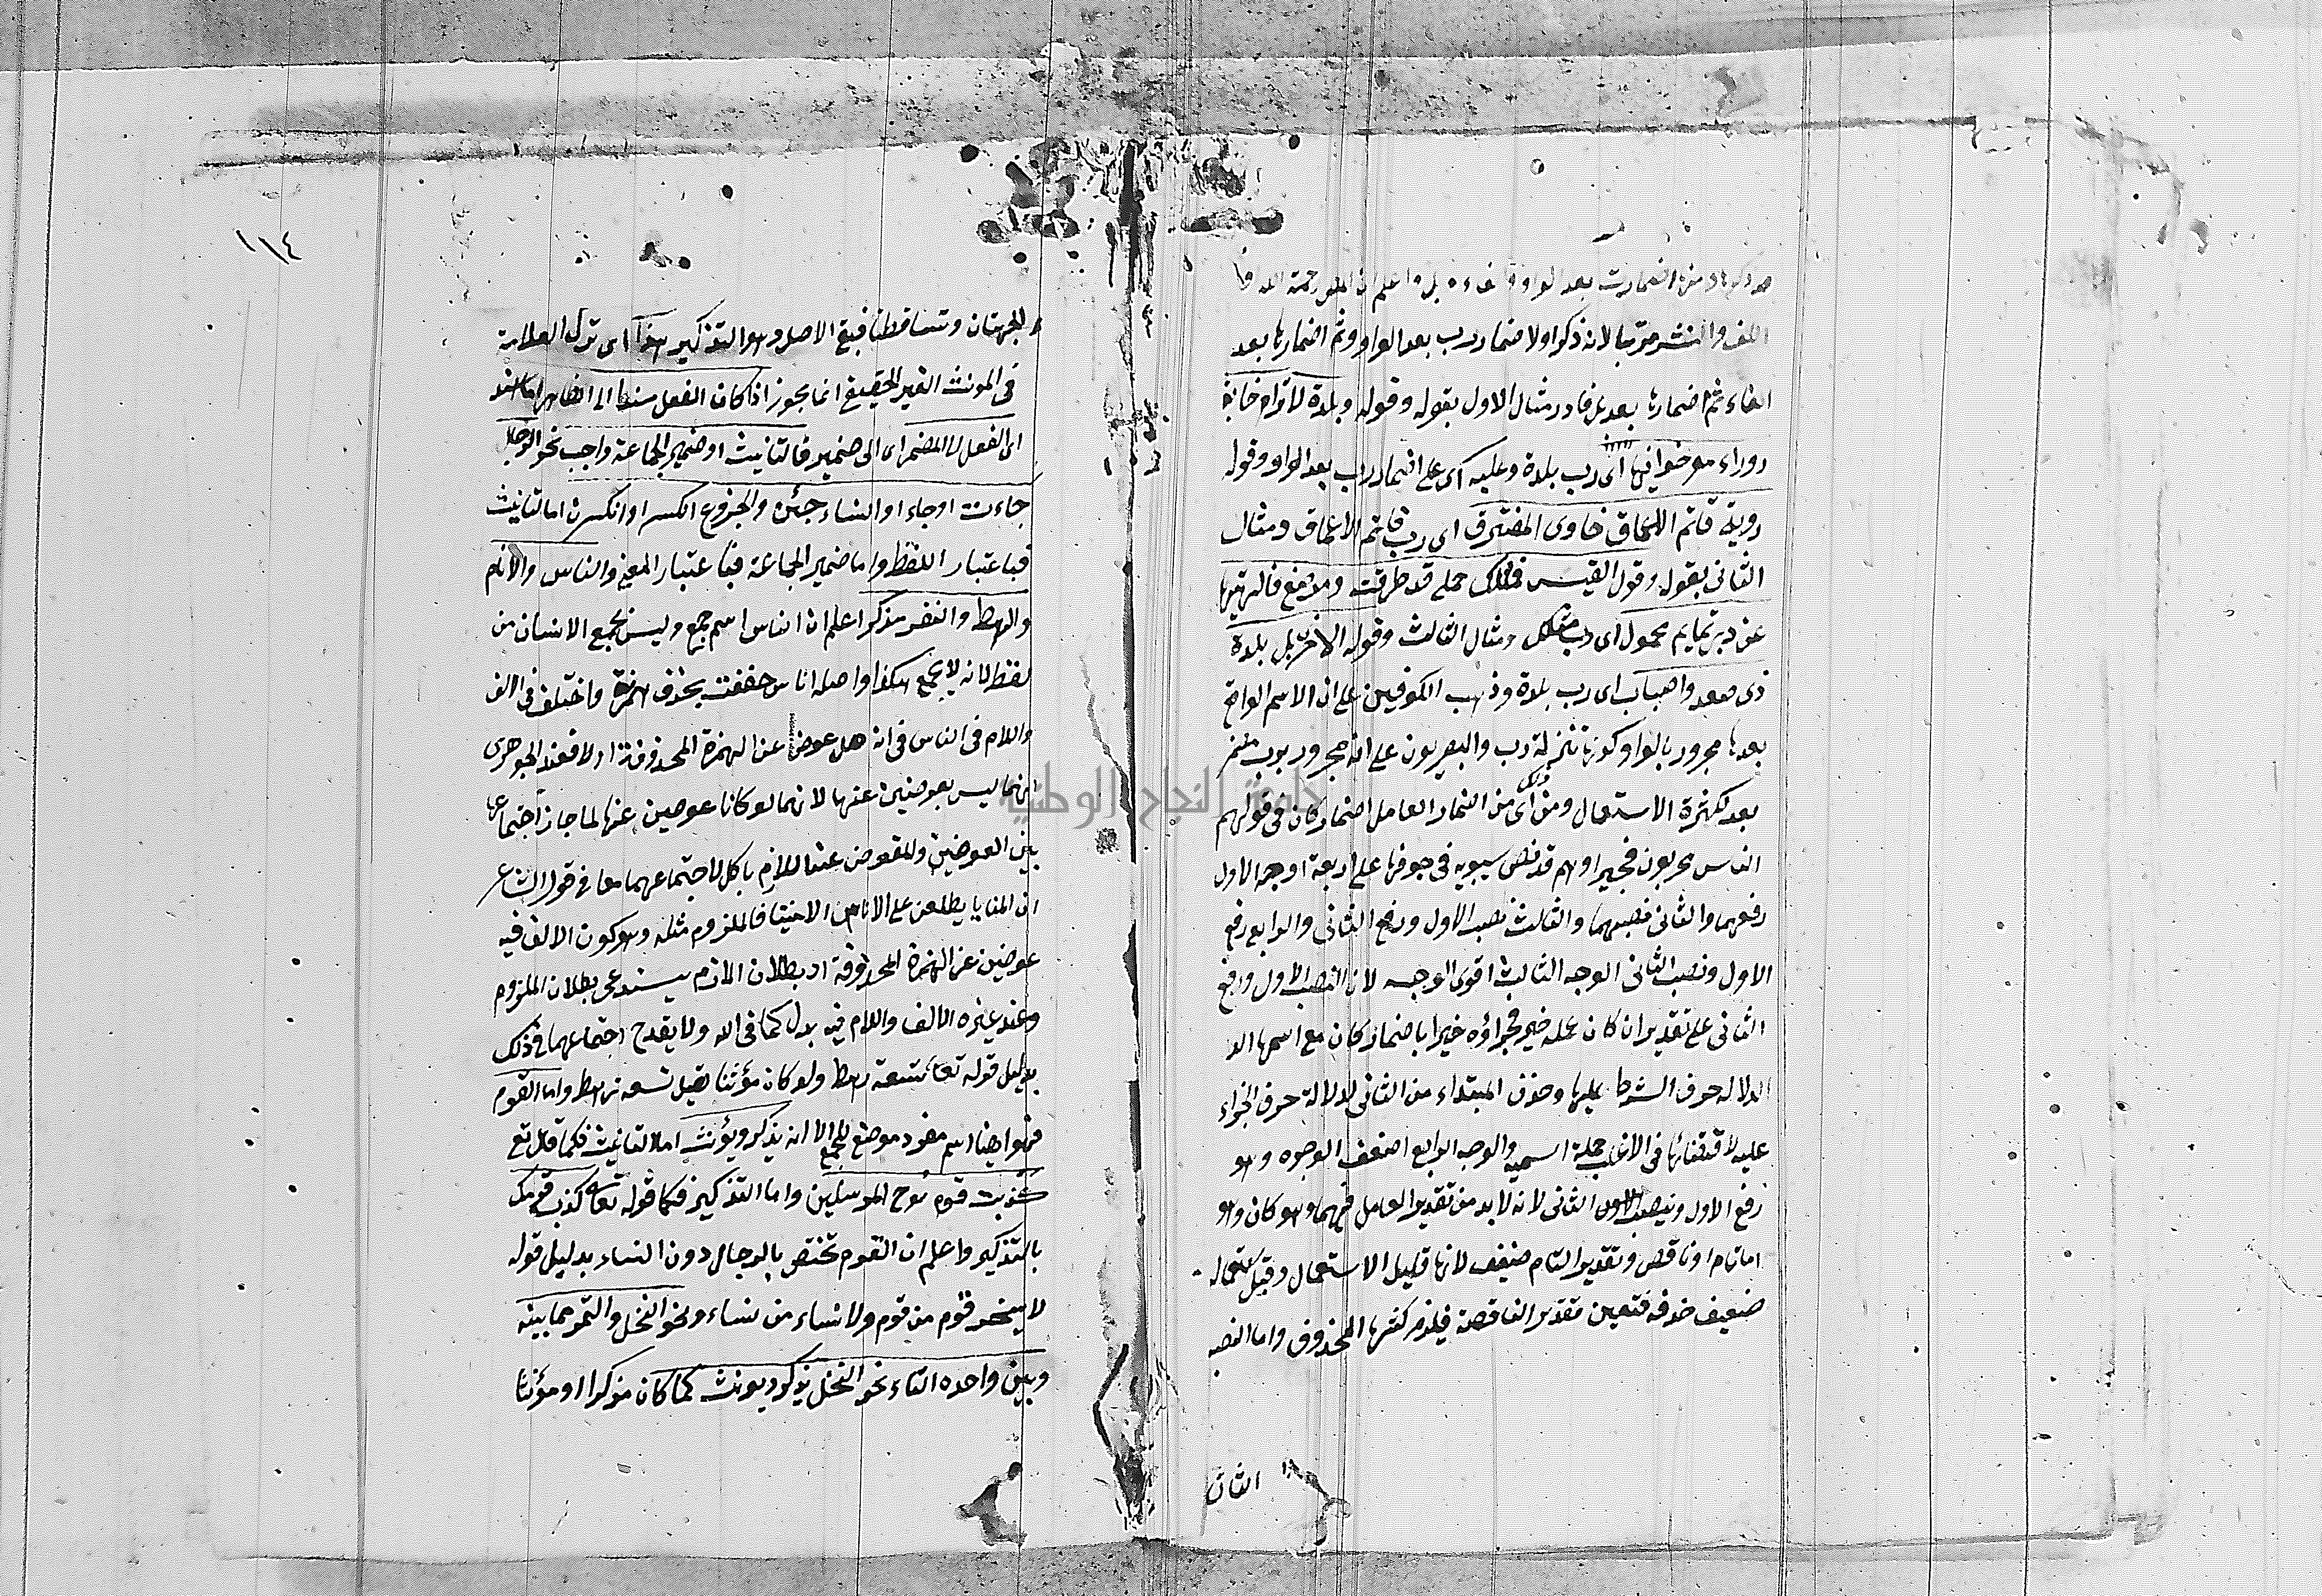 اللف والنشر مرتبا لانه ذكر اولا ضمار رب بعد الواو وثم اضمارها بعد
الفاء ثم اضمارها بعد بل فاورد مثال الاول بقوله وقوله وبلدة لا ترام خائفة
زوراء اى رب بلدة وعليه اى على اضمار رب بعد الواو وقوله
روبة قاتم الاعماق خاوى المخترق اى رب قاتم الاعماق ومثال
الثانى بقوله وقول القيس فمثلك حبلى قد طرقت ومرضع فالهيتها
عن ذى تمايم محول اى رب مثلك ومثال الثالث وقوله الاخر بل بلدة
ذى صعد واصباب اى رب بلدة وذهب الكوفيين على ان الاسم الواقع
بعدها مجرور بالواو كونها بمنزلة رب والبصريون على انه مجرور برب
بعد لكثرة الاستعمال ومن اى من اضمار العامل اضمار كان فى قولهم
الناس مجزيون فخير اوهم قد نص سيبويه فى جوفها على اربعة اوجه الاول
رفعهما والثانى نصبهما والثالث نصب الاول ورفع الثانى والرابع رفع
الاول ونصب الثانى الوجه الثالث اقوى الوجه لان النصب الاول ورفع
الثانى على تقدير ان كان عمله خير فجزاؤه خيرا باضمار كان مع اسمها
لدلاله حرف الشرط عليها وحذف المبتداء من الثانى لدلالة حرف الجزاء
عليه لاقتضائها فى الاغلب جملة اسمية والوجه الرابع اضعف الوجوه وهو
رفع الاول ونصب الثانى لانه لا بد من تقدير العامل فيهما وهو كان وهو
اما تام او ناقص وتقدير التام ضعيف لانها قليل الاستعمال وقيل
ضعيف حذفه فتعين تقدير الناقصة فيلزم المحذوف واما النصبه
الثان
١١٤
الجهتان وتساقطتا فبقى الاصل وهو التذكير هذا اى ترك العلامة
فى المونث الغير الحقيقى انما يجوز اذا كان الفعل مسندا الى الظاهر اما اسند
اى الفعل الى المضمر اى الى ضمير فالتانيث او ضمير الجماعة واجب نحو الرجال
جاءت او جاءوا والنساء جئن والجذوع انكسر او انكسرن اما التانيث
فباعتبار اللفظ واما ضمير الجماعة فباعتبار المعنى والناس والانام
والرهط والنفر مذكر اعلم ان الناس اسم جمع وليس بجمع الانسان من
لفظ لانه لا يجمع هكذا واصله اناس خففت بحذف همزة واختلف فى الالف
واللام فى الناس فى انه هل عوض عن الهمزة المحذوفة او لا فعند الجوهرى
انهما ليس بعوضين عنها لانهما لو كانا عوضين عنها لما جاز اجتماعها
بين العوضين والمعوض عنها اللازم باطل لاجتماعهما معا فى قول الشاعر
ان المنايا يطلعن على الاناس الامنينا فالملزوم مثله وهو كون الالف فيه
عوضين عن الهمزة المحذوفة اذ بطلان اللازم يستدعى بطلان الملزوم
وعند غيره الالف واللام فيه بدل كما فى الله ولا يقدح اجتماعهما فى ذلك
بدليل قوله تعا تسعة رهط ولو كان مؤنثا لقيل تسع رهط واما القوم
فهو ايضا اسم مفرد موضع للجمع الا انه يذكر ويؤنث اما التانيث فكما قال تع
كذبت قوم نوح المرسلين واما التذكير فكما قوله تعا كذب قومك
بالتذكير واعلم ان القوم تختص بالرجال دون النساء بدليل قوله
لا يسخر قوم من قوم ولا نساء من نساء ونحو النخل والتمر مما بينه
وبين واحده التاء نحو النخل يذكر ويونث كما كان مذكرا او مؤنثا